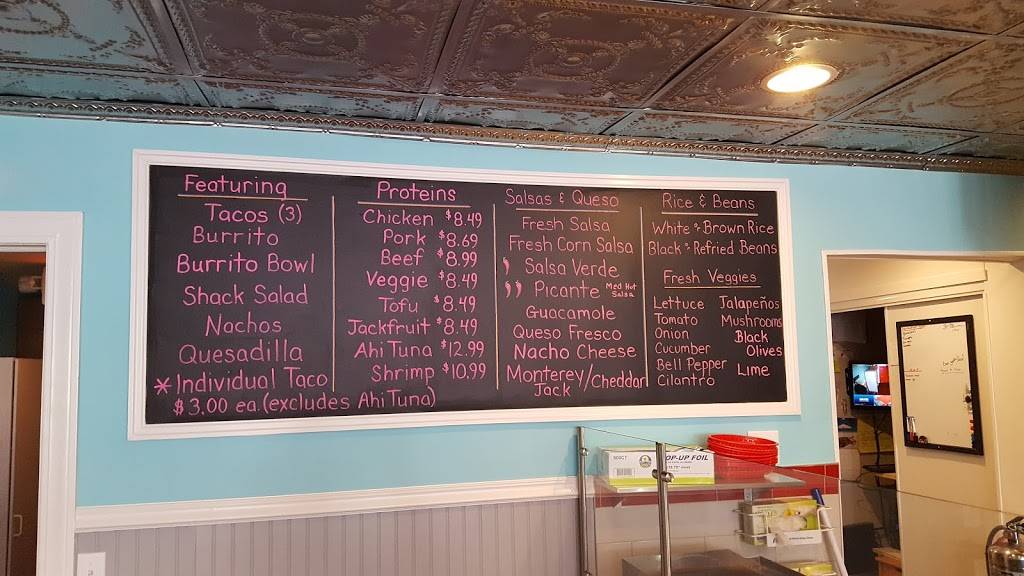 Featuring
Tacos (3)
Burrito
Burrito Bowl
Shack Salad
Nachos
Quesadilla
*Individual Taco
$3.00 ea.(excludes Ahi Tuna)
Proteins
Chicken $8.49
Pork $8.69
Beef $8.99
Veggie $8.49
Tofu $8.49
Jackfruit $8.49
Ahi Tuna $12.99
Shrimp $10.99
Salsas & Queso
Fresh Salsa
Fresh Corn Salsa
Salsa Verde
Picante Med Hot Salsa
Guacamole
Queso Fresco
Nacho Cheese
Monterey/Cheddar
Jack
Rice & Beans
White & Brown Rice
Black & Refried Beans
Fresh Veggies
Lettuce
Tomato
Onion
Cucumber
Bell Pepper
Cilantro
Jalapeños
Mushrooms
Black
Olives
Lime
500CT
OP-UP FOIL